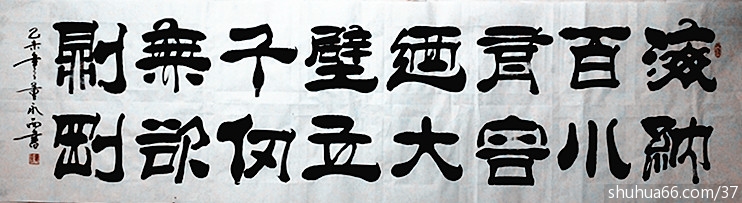 海納
百川
有容
迺大
壁立
千仞
無欲
則剛
乙未年
shuhua66.com/37